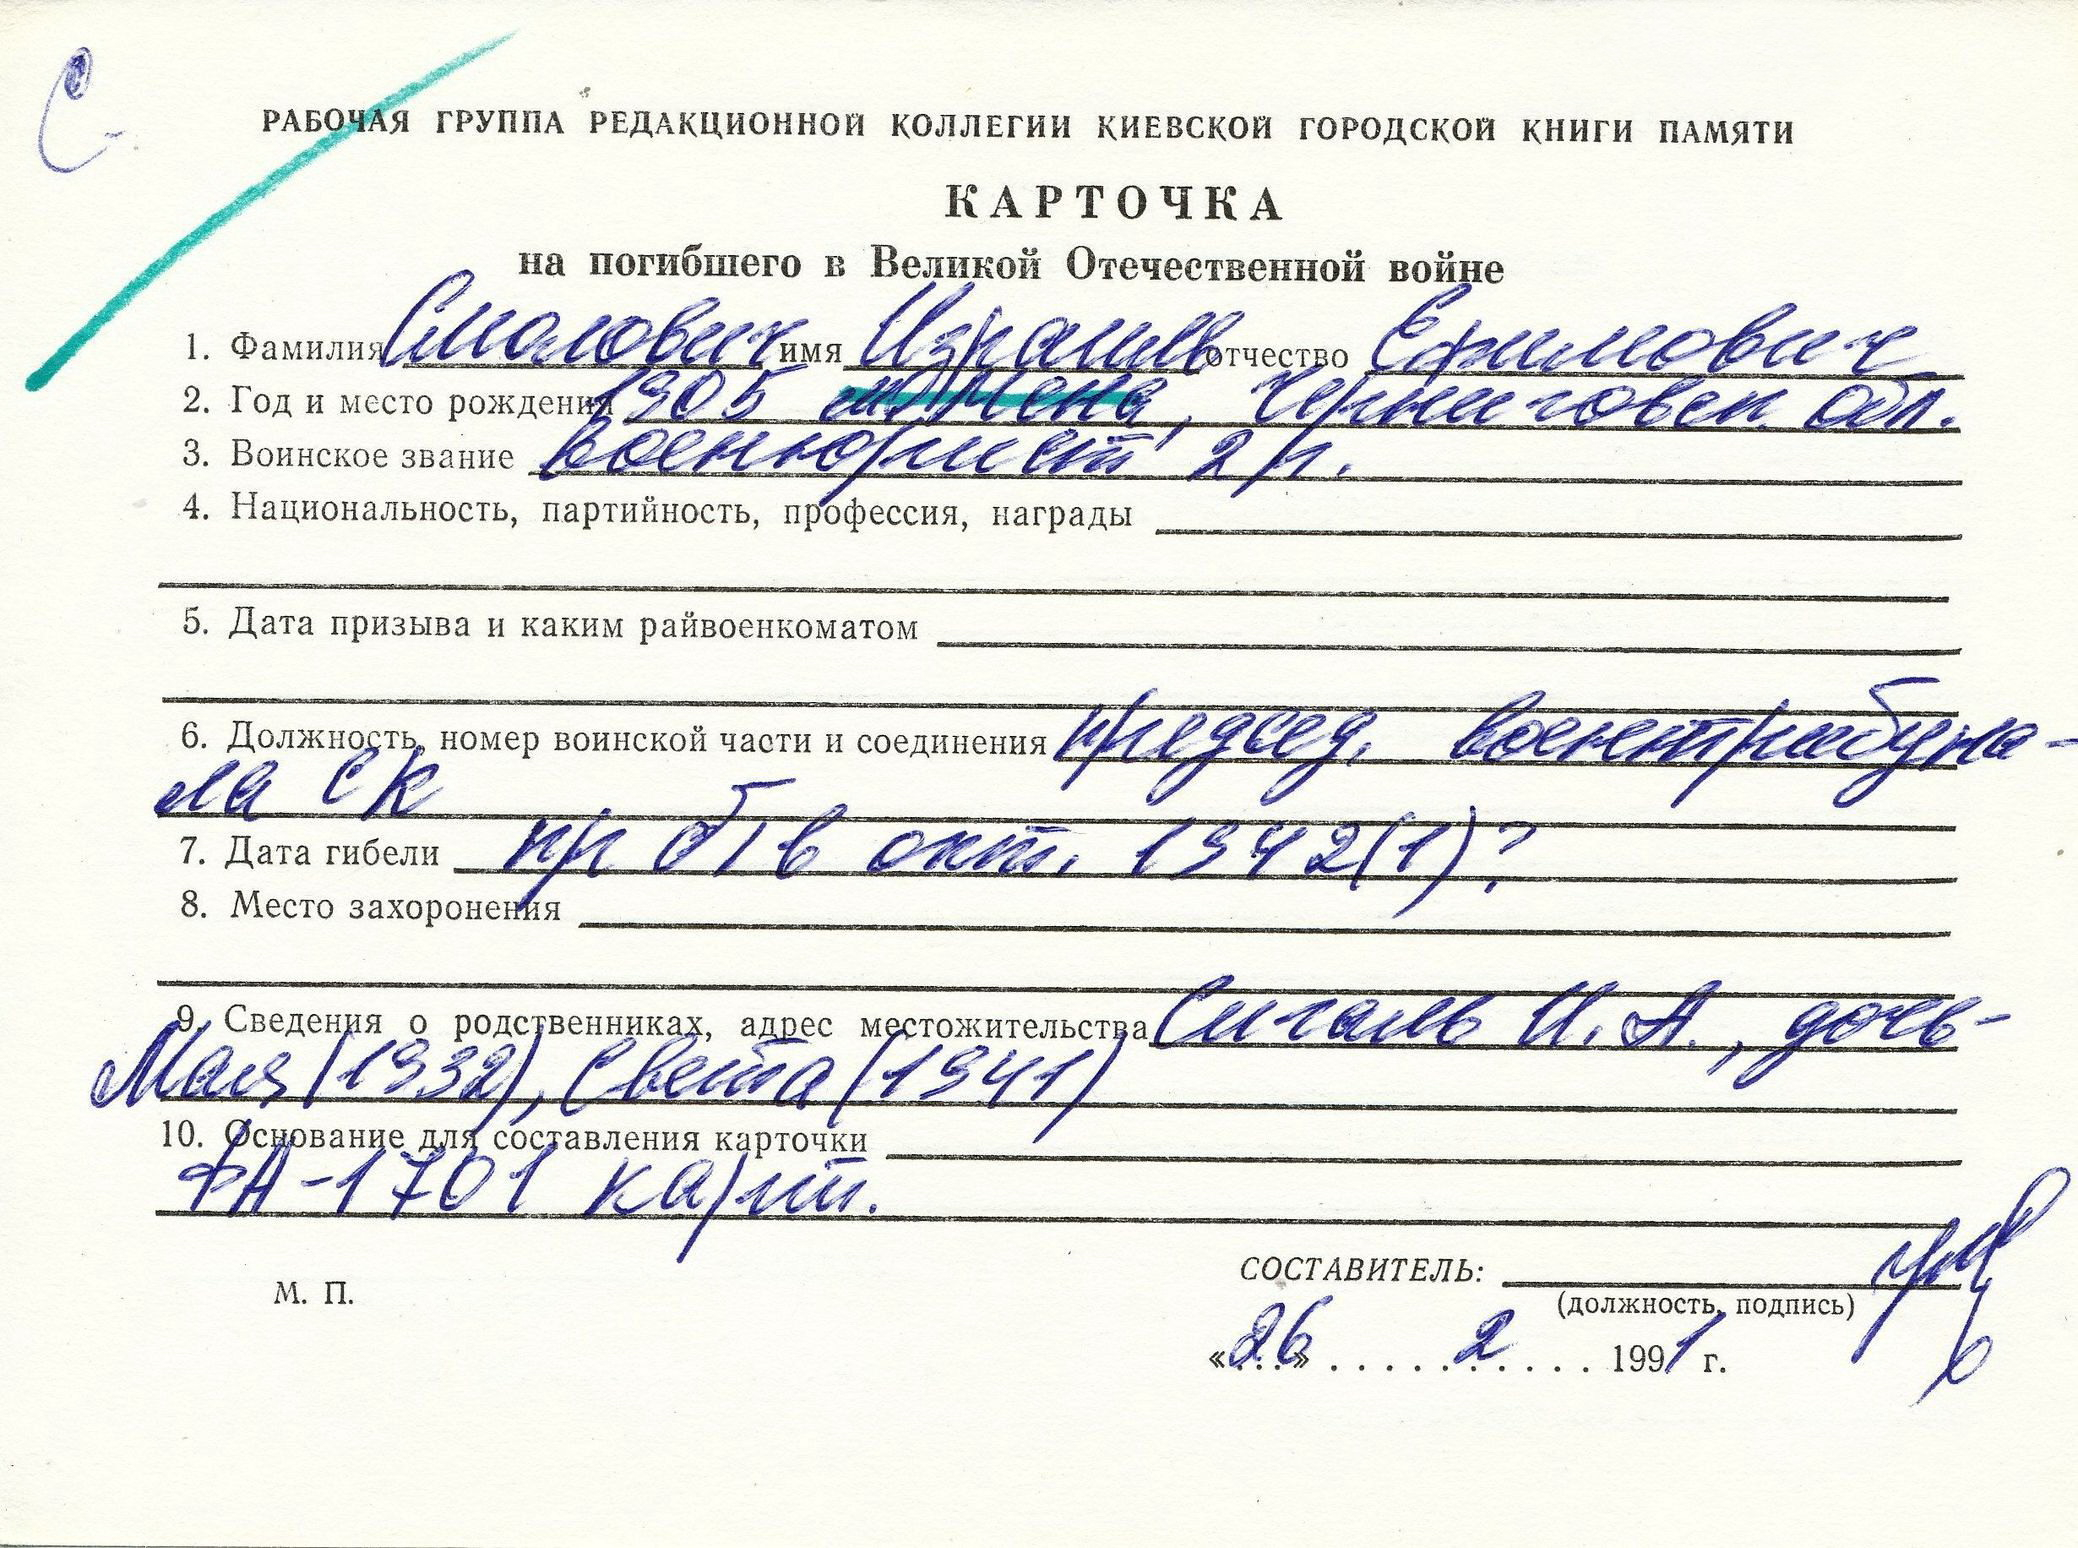 С.
РАБОЧАЯ ГРУППА РЕДАКЦИОННОЙ КОЛЛЕГИИ КИЕВСКОЙ ГОРОДСКОЙ КНИГИ ПАМЯТИ
КАРТОЧКА
на погибшего в Великой Отечественной войне
1. Фамилия Смолович имя Израиль отчество Ефимович
2. Год и место рождения 1905 м. Мена, Черниговск. обл.
3. Воинское звание военюрист 2 р.
4. Национальность, партийность, профессия, награды
5. Дата призыва и каким райвоенкоматом
6. Должность, номер воинской части и соединения председ. воентрибуна-
ла СК
7. Дата гибели пр б/в окт. 1942(1)?
8. Место захоронения
9. Сведения о родственниках, адрес местожительства Сигаль И. А., дочь-
Мая (1932), Света (1941)
10. Основание для составления карточки
ФА-1701 карт.
М. П.
СОСТАВИТЕЛЬ:
(должность, подпись)
«26» 2 1991 г.